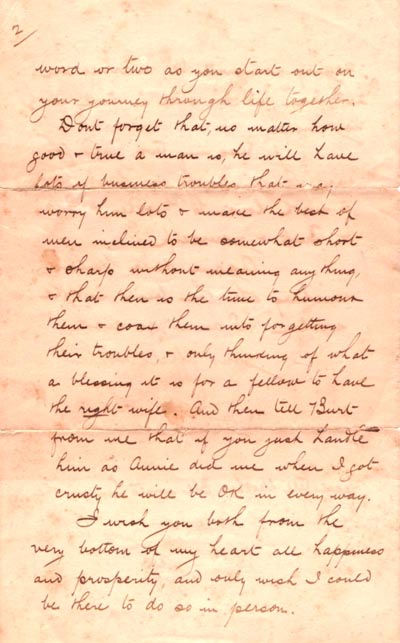 2/
word or two as you start out on
your journey through life together.
Dont forget that, no matter how
good & true a man is, he will have
lots of business troubles that may
worry him lots & make the best of
men inclined to be somewhat short
& sharp without meaning anything,
& that then is the time to humour
them & coax them into forgetting
their troubles, & only thinking of what
a blessing it is for a fellow to have
the right wife. And then tell Burt
from me that if you just handle
him as Annie did me when I got
crusty, he will be OK in every way.
I wish you both from the
very bottom of my heart all happiness
and prosperity, and only wish I could
be there to do so in person.